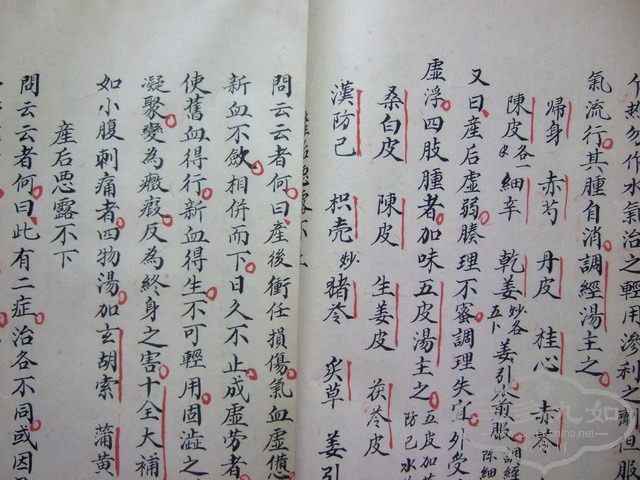 氣流行其腫自消調經湯主之
歸身 赤芍 丹皮 桂心 赤茯
陳皮各 細辛 乾姜炒各 姜引 煎服
又曰產后虛弱腠理不蜜調理失宜外受
虛浮四肢腫者加味五皮湯主之五皮加
桑白皮 陳皮 生姜皮 茯苓皮
漢防己 枳壳炒 豬苓 炙草 姜引
問云云者何曰產後衝任損傷氣血虛憊
新血不斂相併而下日久不止成虛勞者
使舊血得行新血得生不可輕用固澁之
凝聚變為癥瘕反為終身之害十全大補
如小腹刺痛者四物湯加玄胡索 蒲黃
產后悪露不下
問云云者何曰此有二症治各不同或因